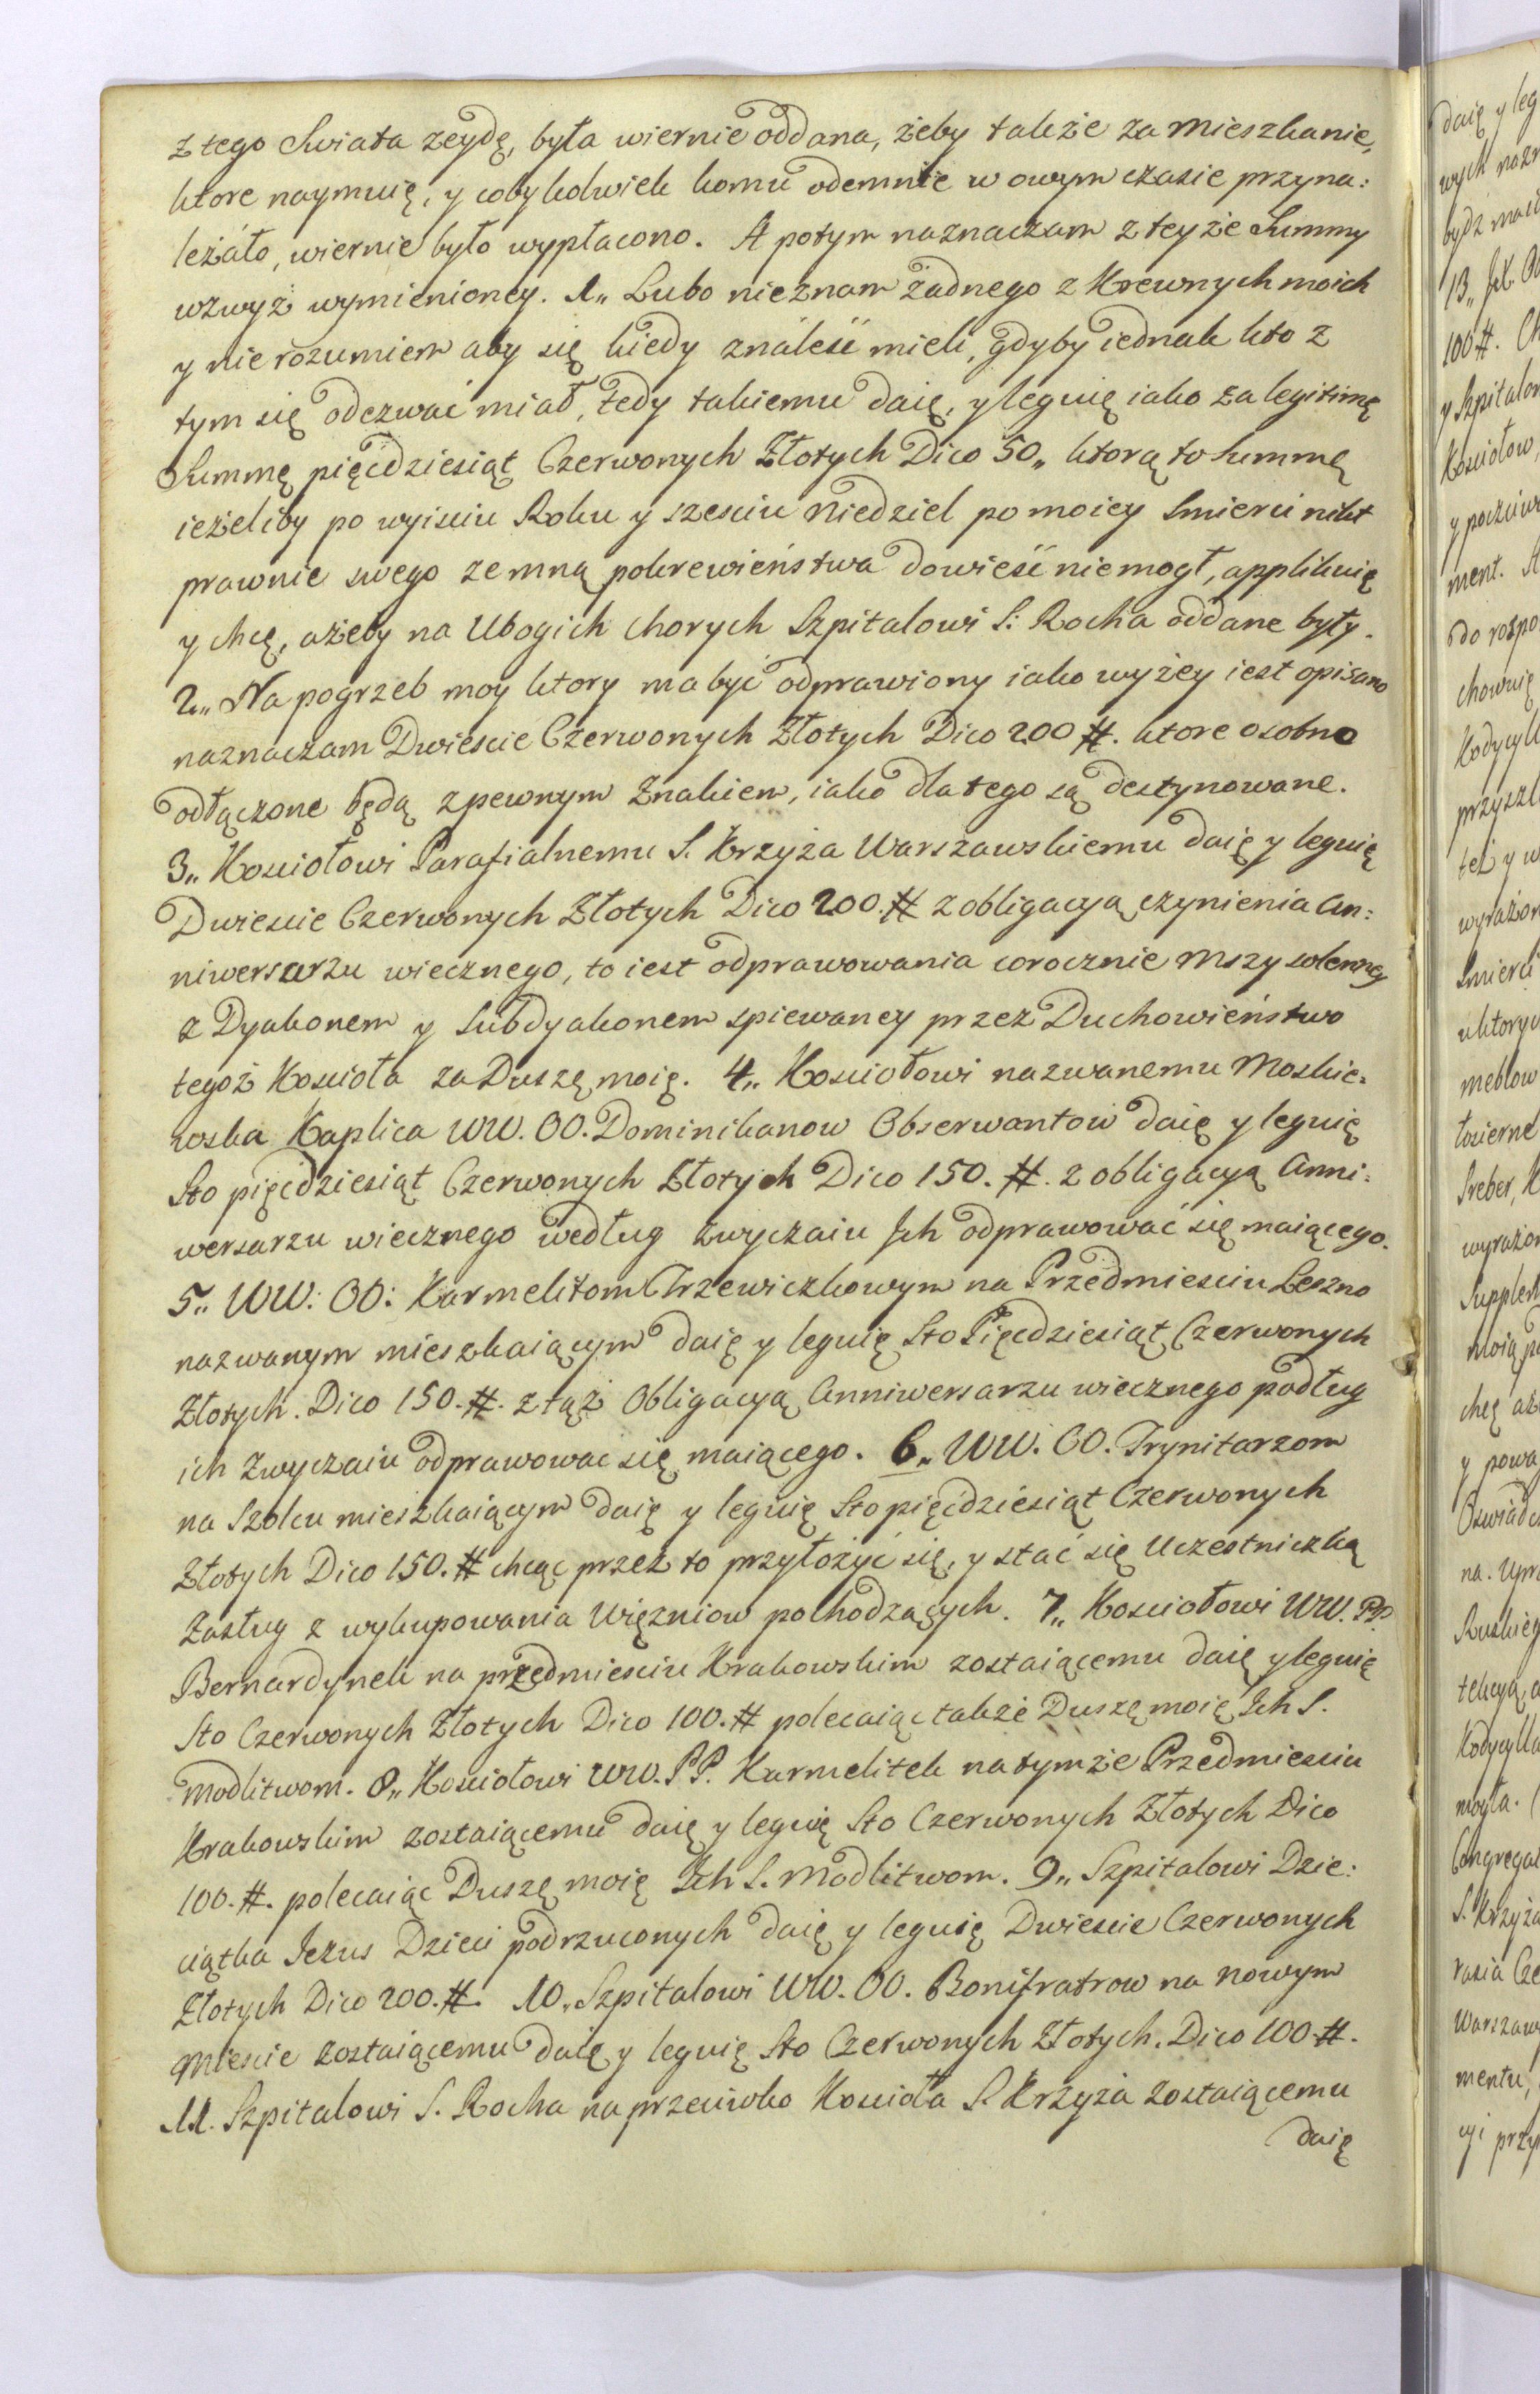 z tego Swiata zeydę, była wiernie oddana, żeby także za mieszkanie,
ktore naymuię, y cobykolwiek komu odemnie w owym czasie przyna:
leżáło, wiernie było wypłacono. A potym naznaczam z teyże Summy
wzwyż wymienioney. 1„ Lubo nieznam żadnego z Krewnych moich
y nie rozumiem aby się kiedyználeść mieli, gdyby iednak kto z
tym się odezwać miał, tedy takiemu daię, y leguię iako za legitimę
Summę pięcdziesiąt Czerwonych Złotych Dico 50„ ktorą to summę
ieżeliby po wyisciu Roku y szesciu Niedziel po moiey Smierci nikt
prawnie swego zemną pokrewieństwa dowieść niemogł, applikuię
y chcę, ażeby na Ubogich chorych Szpitalowi S: Rocha oddane były.
2„ Na pogrzeb moy ktory ma być odprawiony iako wyżey iest opisano
naznaczam Dwiescie Czerwonych Złotych Dico 200 #. ktore osobno
odłączone będą z pewnym Znakiem, iako dla tego są destynowane.
3„ Kosciołowi Parafialnemu S. Krzyża Warszawskiemu daię y leguię
Dwiescie Czerwonych Złotych Dico 200. # z obligacyą czynienia An:
niwersarzu wiecznego, to iest odprawowania corocznie Mszy solenney
z Dyakonem y Subdyakonem spiewaney przez Duchowieństwo
tegoż Kosciola za Duszę moię. 4„ Kosciołowi nazwanemu Moskie:
wska Kaplica WW. OO. Dominikanow Obserwantow daię y leguię
Sto pięcdziesiąt Czerwonych Złotych Dico 150. #. z obligacyą Anni:
wersarzu wiecznego według zwyczaiu Ich odprawować się maiącego.
5„ WW: OO: Karmelitom Trzewiczkowym na Przedmiesciu Leszno
nazwanym mieszkaiącym daię y leguię Sto Pięcdziesiąt Czerwonych
Złotych. Dico 150. #. z tąż Obligacyą Anniwersarzu wiecznego podług
ich zwyczaiu odprawowac się maiącego. 6„ WW. OO. Trynitarzom
na Szolcu mieszkaiącym daię y leguię Sto pięćdziesiąt Czerwonych
Złotych Dico 150. # chcąc przez to przyłożyć się, y stać się Uczestniczką
Zasług z wykupowania Więzniow pochodzących. 7„ Kosciołowi WW. PP.
Bernardynek na przedmiesciu Krakowskim zostaiącemu daię y leguię
Sto Czerwonych Złotych Dico 100. # polecaiąc także Duszę moię Ich S.
Modlitwom. 8„ Kosciołowi WW. PP. Karmelitek na tymże Przedmiesciu
Krakowskim zostaiącemu daię y leguię Sto Czerwonych Złotych Dico
100. #. polecaiąc Duszę moię Ich S. Modlitwom. 9„ Szpitalowi Dzie:
ciątka Jezus Dzieci podrzuconych daię y leguię Dwiescie Czerwonych
Złotych Dico 200. #. 10. Szpitalowi WW. OO. Bonifratrow na Nowym
Miescie zostaiącemu daię y leguię Sto Czerwonych Złotych. Dico 100 #.
11. Szpitalowi S. Rocha naprzeciwko Kosciola S. Krzyża zostaiącemu
daię
daię y leg
wych
bydz
13„
100 #.
y Szpitalow
Kosciołow,
y
ment.
do rospo
chownię
Kodycyll
przyszl
też y w
wyrażon
Smierci
meblow
Sreber,
wyrażon
Supplem
moią
chcę aż
y powa
na.
Kodycylla
mogła.
Congregac
S. Krzyża
Warszaw
mentu,